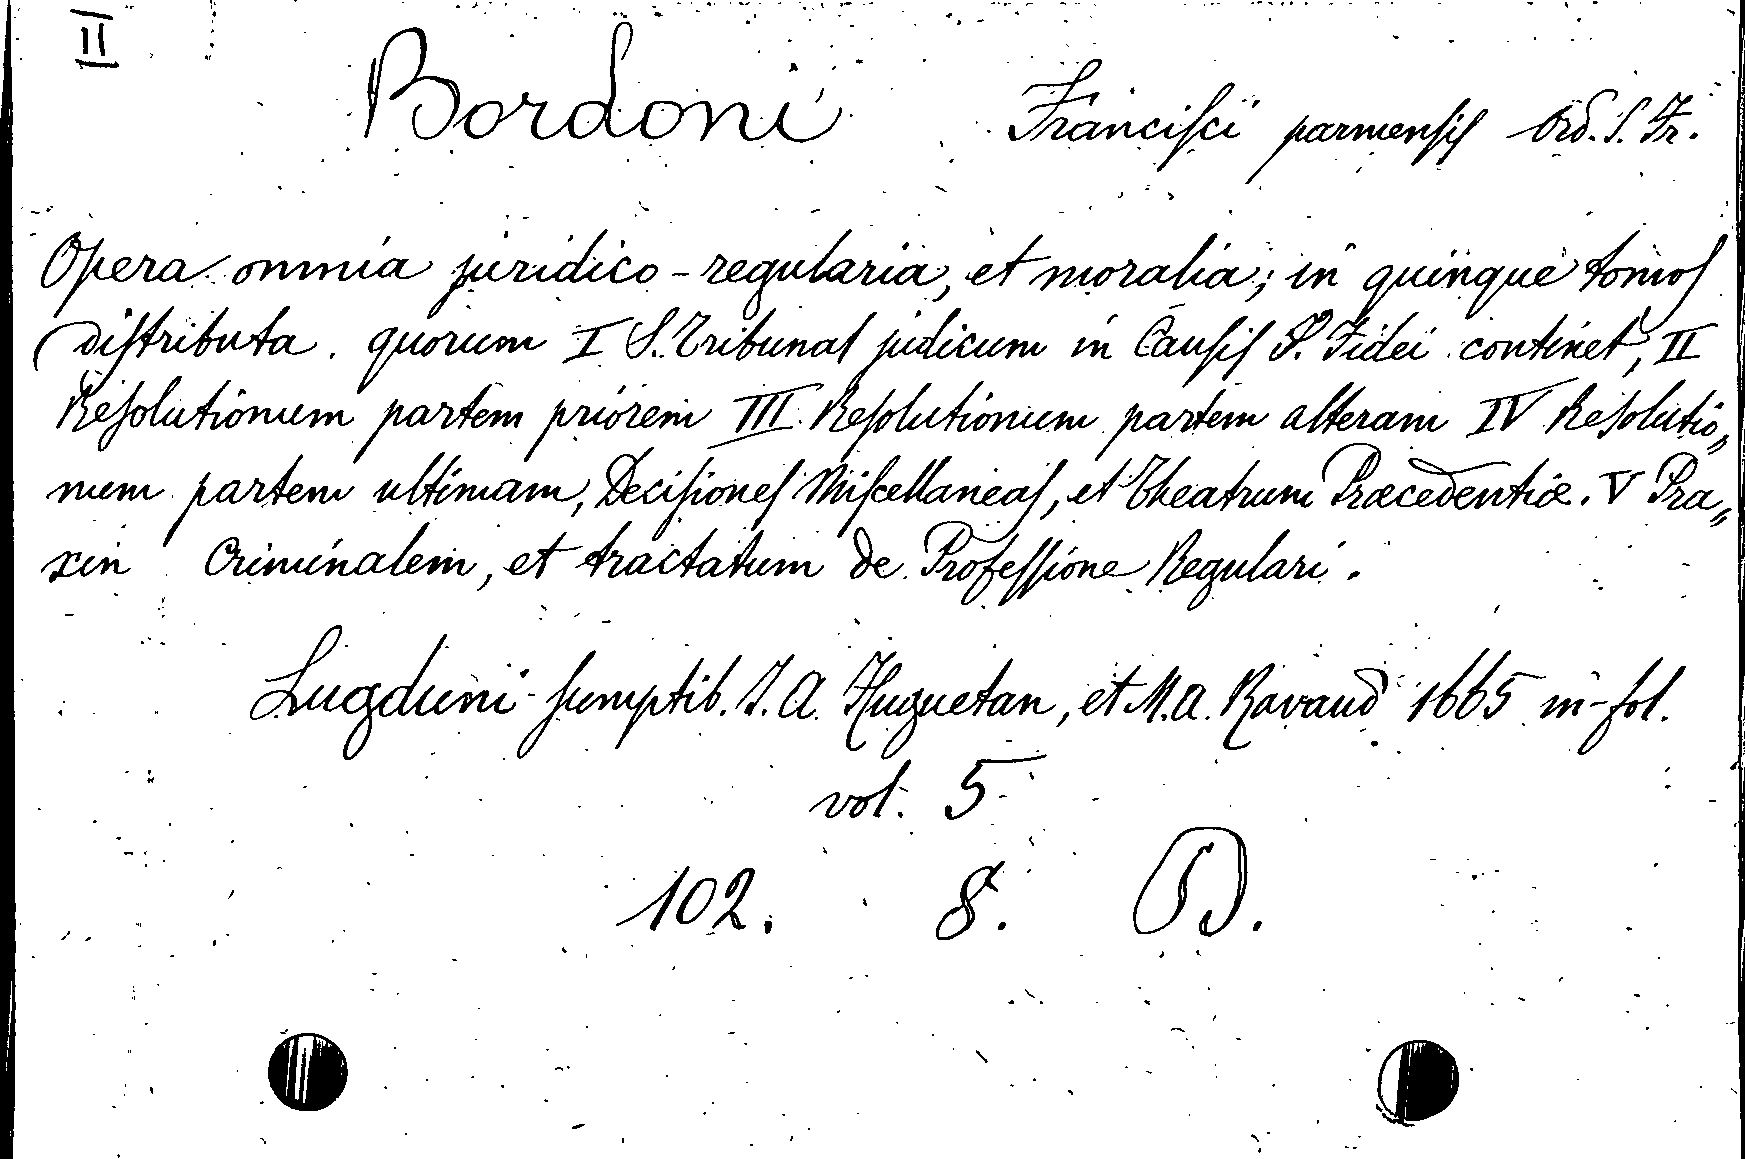 II
Bordoni Francisci parmensis Ord. S. Fr.
Opera omnia juridico-regularia, et moralia; in quinque tomos
distributa. quorum I S. Tribunal judicum in Causis S. Fidei continet, II
Resolutionum partem priorem III Resolutionum partem alteram IV Resolutio„
num partem ultimam, Decisiones Miscellaneas, et Theatrum Præcedentiæ. V Pra„
xin Criminalem, et tractatum de Professione Regulari.
Lugduni sumptib. I. A. Huguetan, et M. A. Ravaud 1665 in-fol.
vol. 5
102. 8. D.